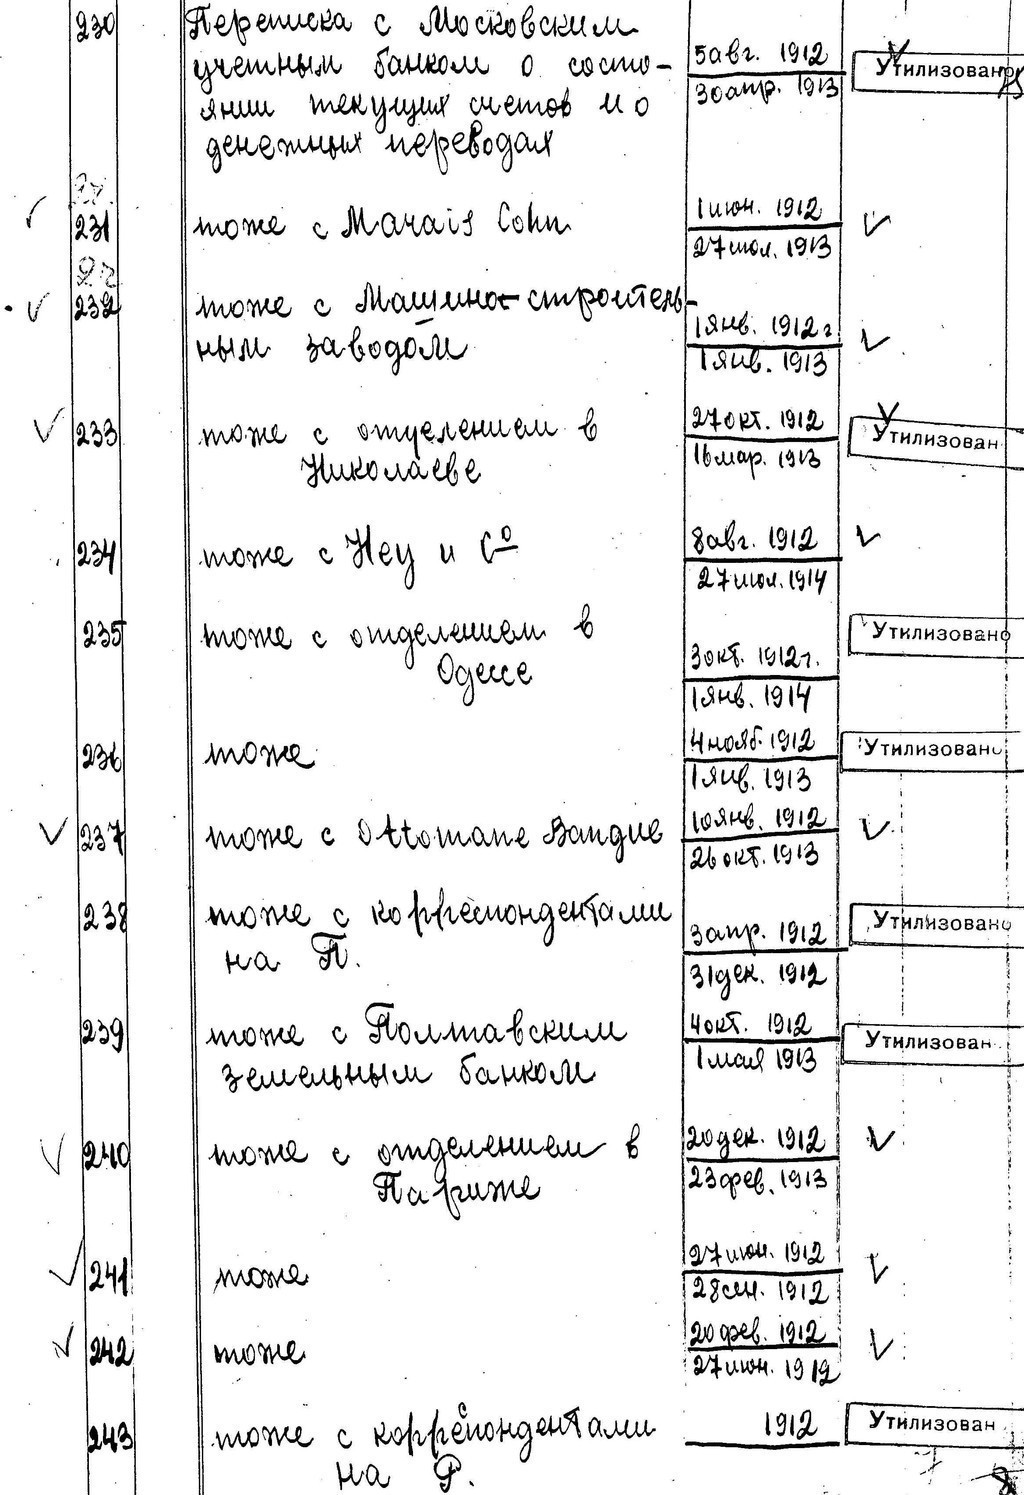 230 Переписка с Московским
учетным банком о состо-
5 авг. 1912
Утилизовано
янии текущих счетов и о
30 апр. 1913
денежных переводах
231 тоже с Marais Cohn
1 июн. 1912
27 июл. 1913
232 тоже с Машино-строитель-
ным заводом
1 янв. 1912 г.
1 янв. 1913
233 тоже с отделением в
Николаеве
27 окт. 1912
16 мар. 1913
Утилизован
234 тоже с Неу и Со
8 авг. 1912
27 июл. 1914
235 тоже с отделением в
Одессе
3 окт. 1912 г.
1 янв. 1914
Утилизовано
236 тоже
4 нояб. 1912
1 янв. 1913
Утилизовано
237 тоже с Ottomane Banque
10 янв. 1912
26 окт. 1913
238 тоже с корреспондентами
на П.
3 апр. 1912
31 дек. 1912
Утилизовано
239 тоже с Полтавским
земельным банком
4 окт. 1912
1 мая 1913
Утилизован
240 тоже с отделением в
Париже
20 дек. 1912
23 фев. 1913
241 тоже
27 июн. 1912
28 сен. 1912
242 тоже
20 фев. 1912
27 июн. 1912
243 тоже с корреспондентами
на Р.
1912
Утилизован
7 8